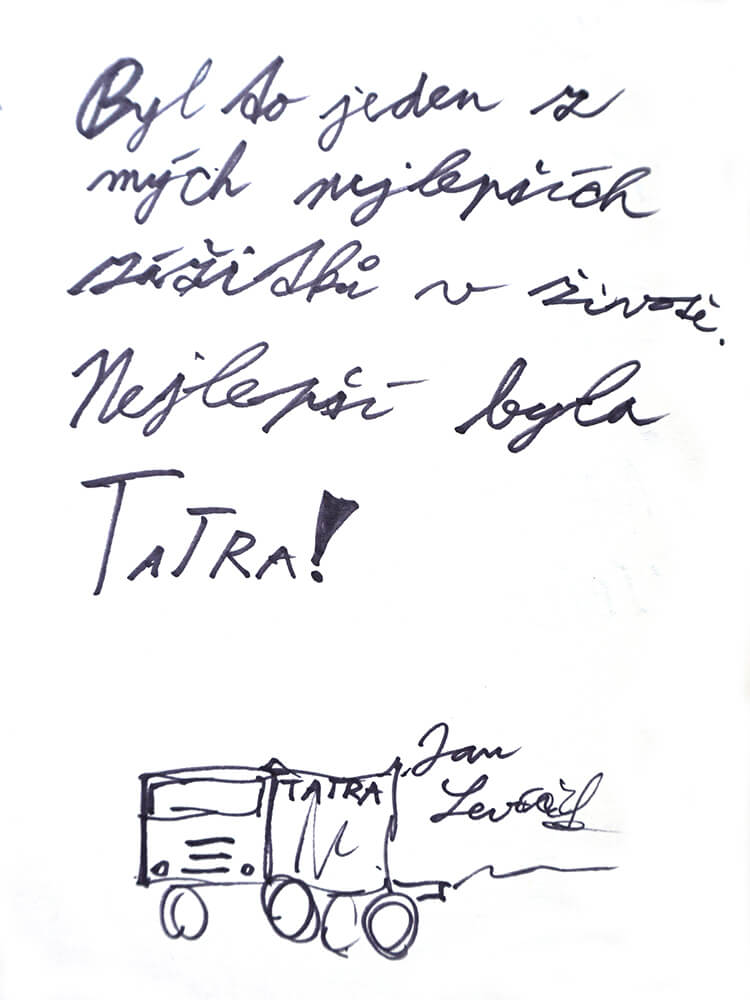 Byl to jeden z
mých nejlepších
zážitků v životě.
Nejlepší byla
TATRA!
Jan
TATRA